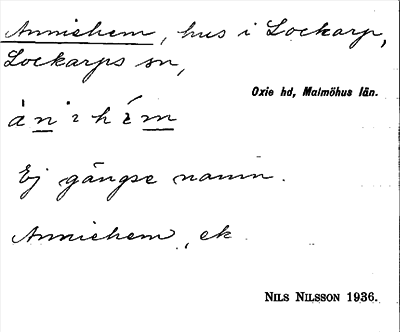 Anniehem, hus i Lockarp,
Lockarps sn,
Oxie hd, Malmöhus län.
Ej gängse namn.
Anniehem, ek
NILS NILSSON 1936.